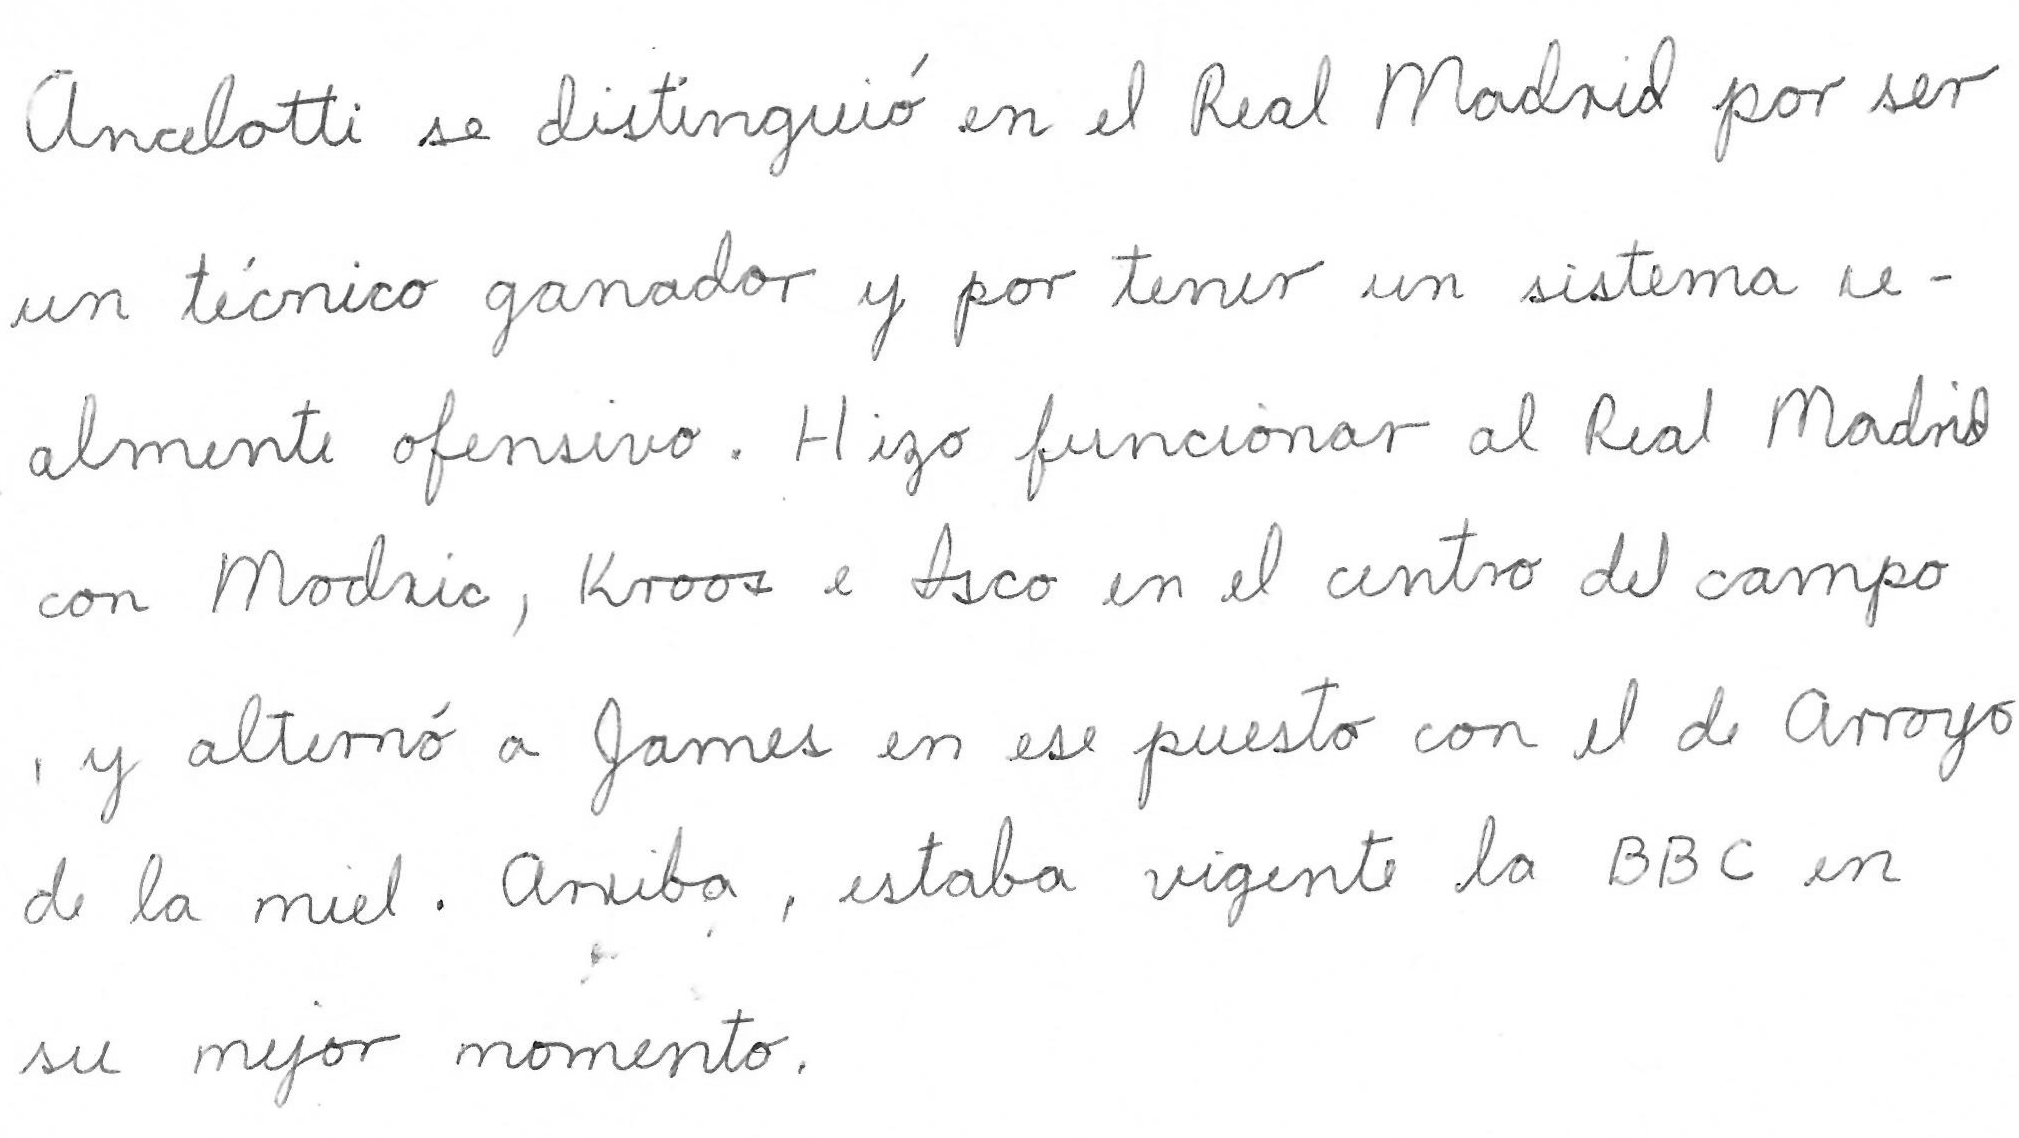 Ancelotti se distinguió en el Real Madrid por ser
un técnico ganador y por tener un sistema re-
almente ofensivo. Hizo funcionar al Real Madrid
con Modric, Kroos e Isco en el centro del campo
, y alternó a James en ese puesto con el de Arroyo
de la miel. Arriba, estaba vigente la BBC en
su mejor momento.